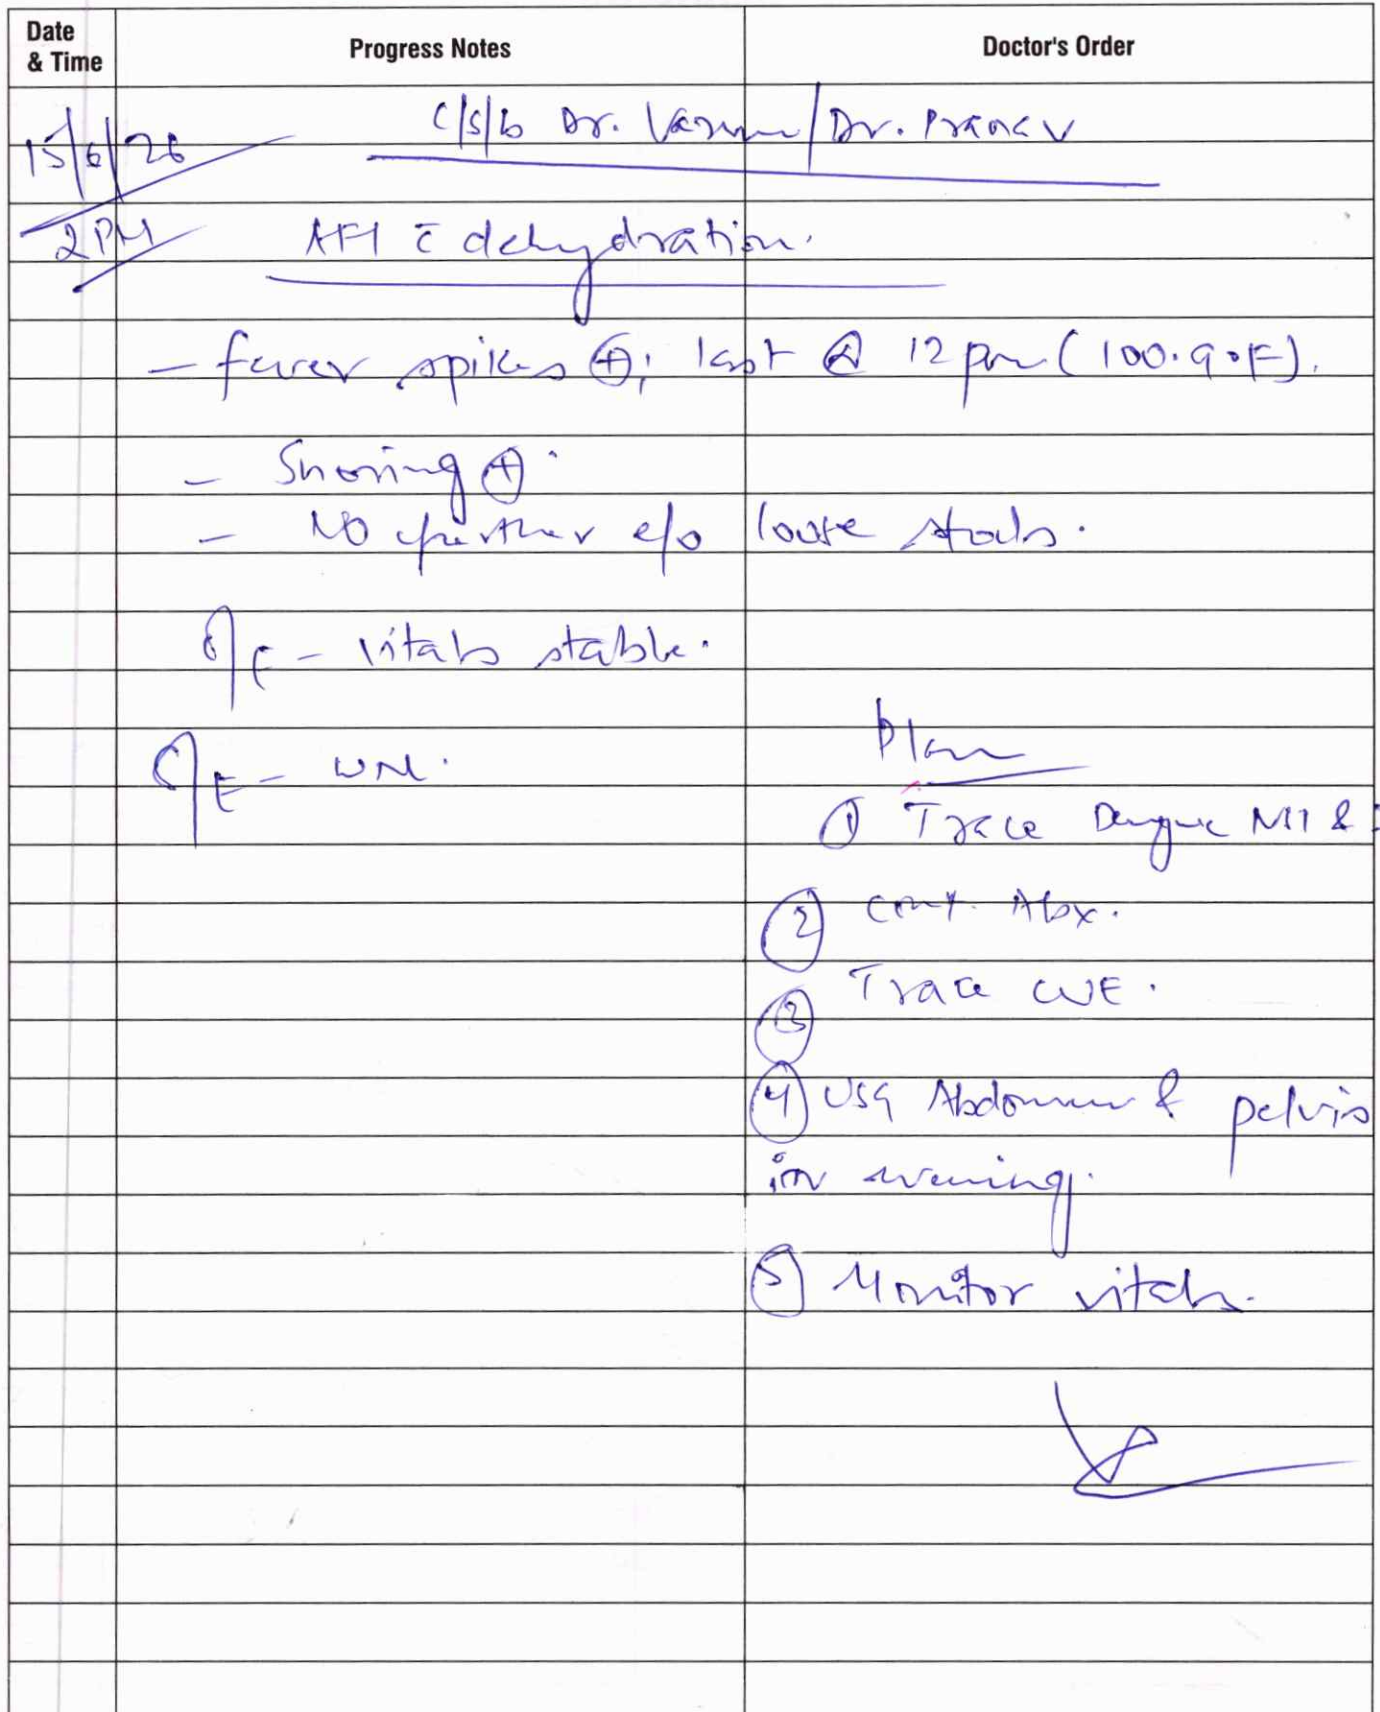 Date & Time Progress Notes Doctor's Order
15/6/26 c/s/b Dr. Varun / Dr. Pranav
2 PM AFI c̄ dehydration.
- fever spikes ⊕; last @ 12 pm (100.9°F).
- Snoring ⊕.
- NO further e/o loose stools.
O/E - vitals stable.
O/E - WNL.
Plan
① Trace Dengue NS1 &
② Cont. Abx.
③ Trace CUE.
④ USG Abdomen & pelvis
in evening.
⑤ Monitor vitals.